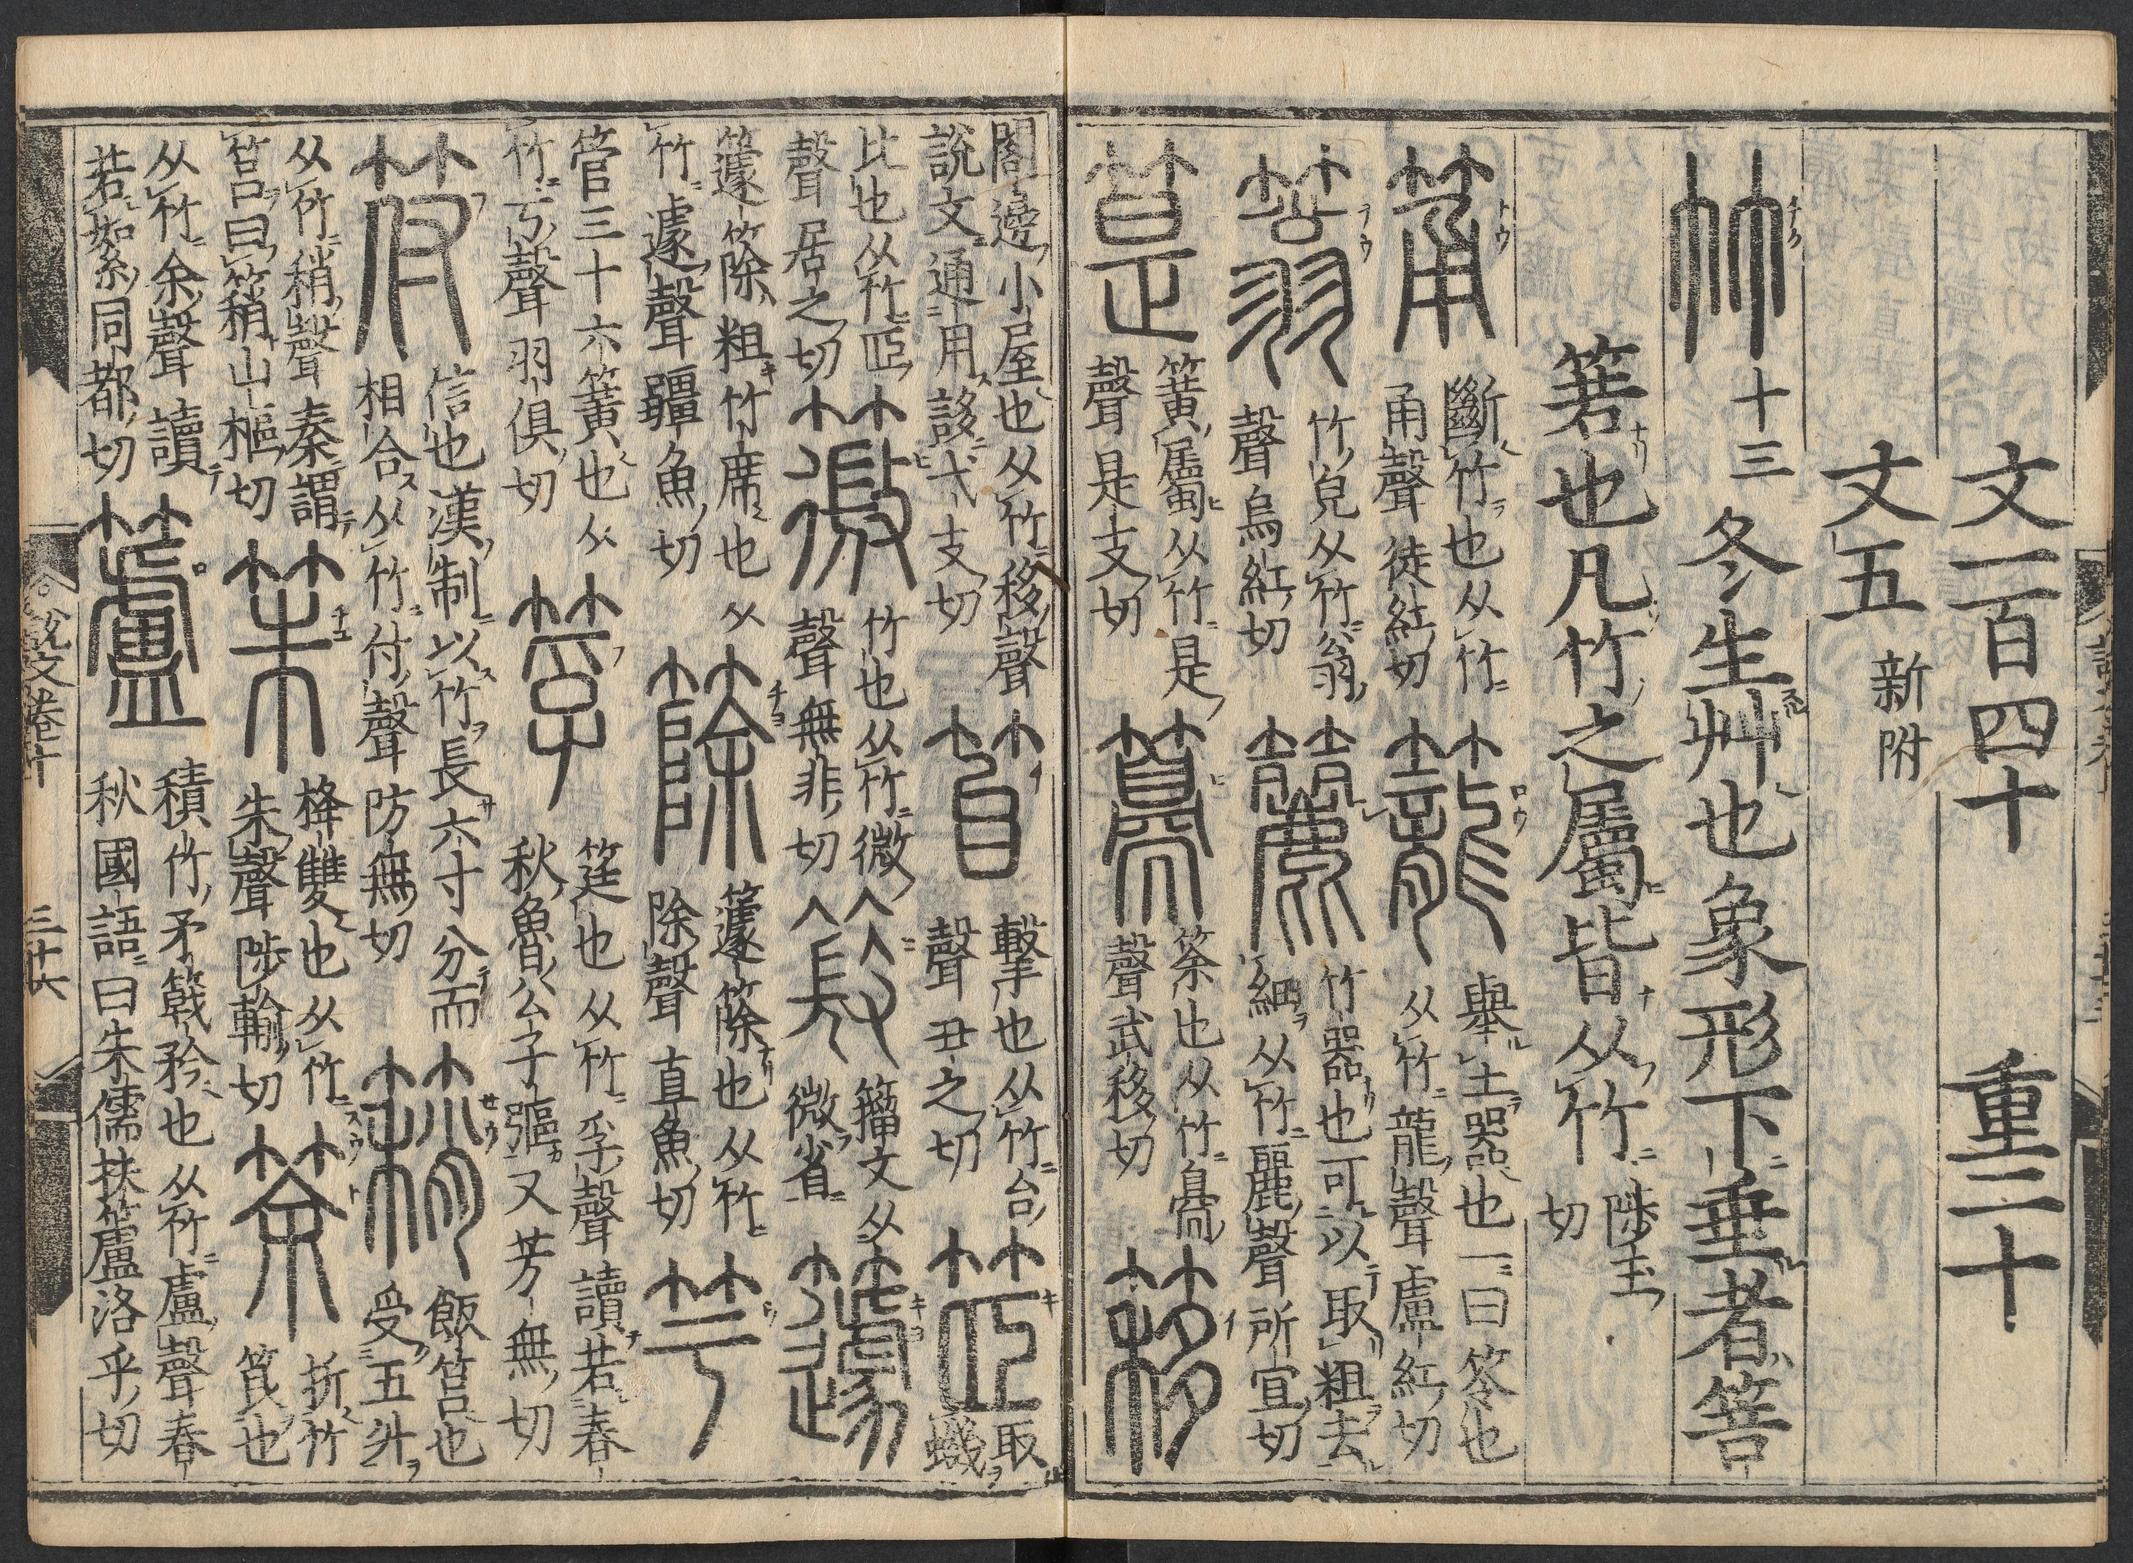 文一百四十 重三十
文五 新附
竹 十三 冬生艸也象形下垂者箁
箬也凡竹之屬皆从竹 陟玉切
筩 斷竹也从竹甬聲徒紅切 籠 舉土器也一曰笭也从竹龍聲盧紅切
䈵 竹皃从竹翁聲烏紅切 籭 竹器也可以取粗去細从竹麗聲所宜切
𥮭 簧屬从竹是聲是支切 䉲 筡也从竹𦤝聲武移切 簃
閣邊小屋也从竹移聲說文通用誃弋支切 笞 擊也从竹台聲丑之切 䇫 取蟣
比也从竹𦣞聲居之切 䉠 竹也从竹微聲無非切 𥬔 籀文从微省 籧
籧篨粗竹席也从竹遽聲彊魚切 篨 籧篨也从竹除聲直魚切 竽
管三十六簧也从竹亏聲羽俱切 筟 筳也从竹孚聲讀若春秋魯公子彄又芳無切
符 信也漢制以竹長六寸分而相合从竹付聲防無切 䈾 飯筥也受五升
从竹稍聲秦謂筥曰䈾山樞切 笨 栙雙也从竹朱聲陟輸切 筡 折竹笢也
从竹余聲讀若絮同都切 籚 積竹矛戟矜也从竹盧聲春秋國語曰朱儒扶籚洛乎切
說文卷十 三十六